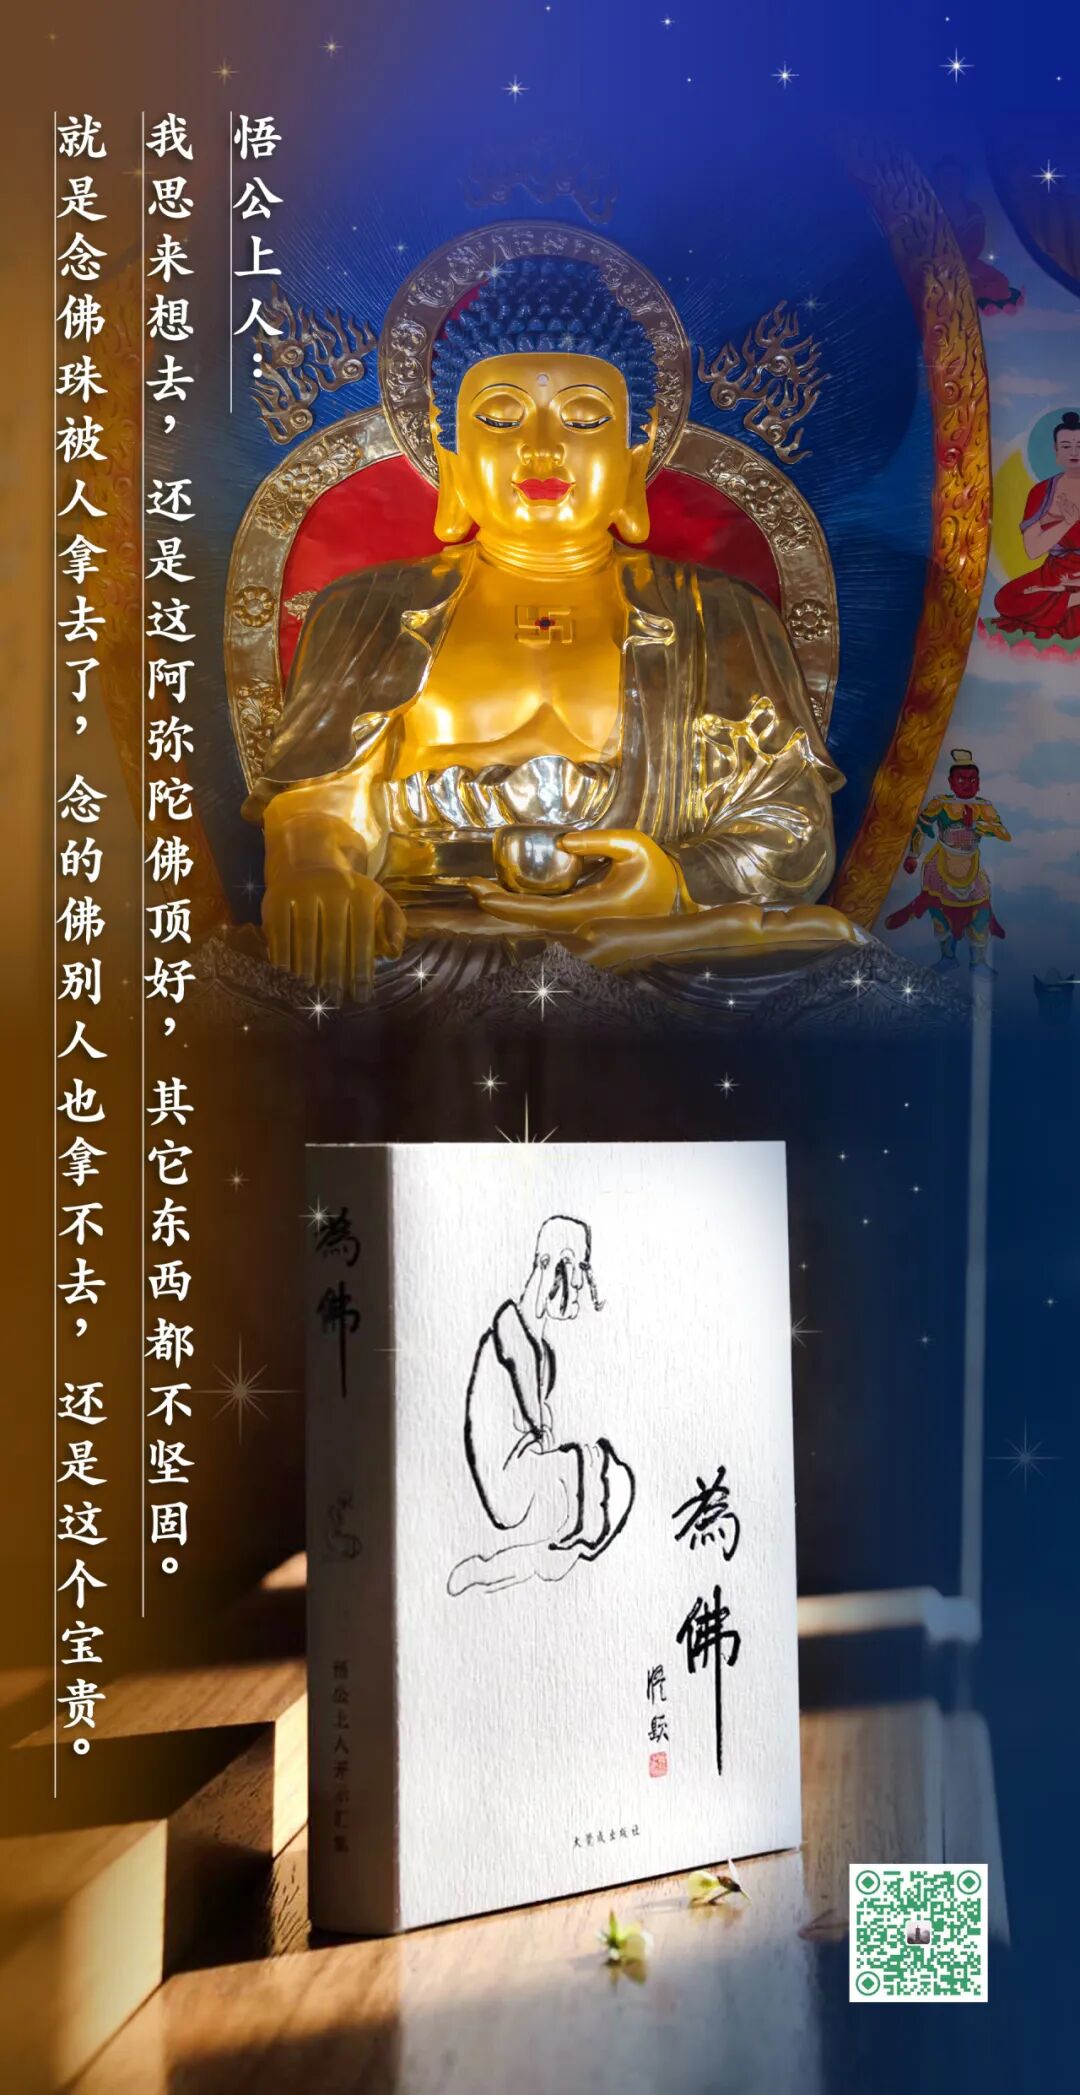 悟公上人：
我思来想去，还是这阿弥陀佛顶好，其它东西都不坚固。
就是念佛珠被人拿去了，念的佛别人也拿不去，还是这个宝贵。
為佛
為佛
悟公上人开示汇集
大覺成出版社